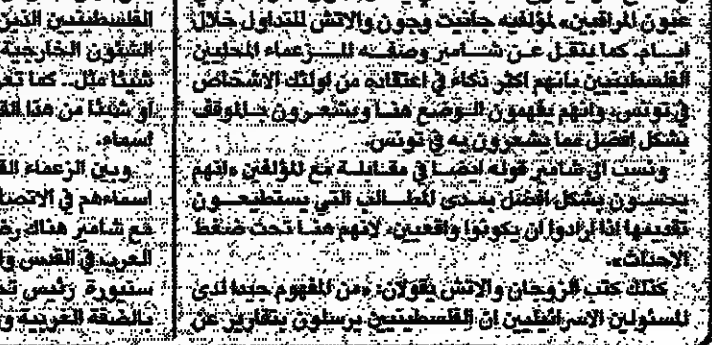 عيون المراقبين» لمؤلفيه جانيت وجون والاتش للتداول خلال
ايام. كما ينقل عن شامير وصفه للزعماء المحليين
الفلسطينيين بانهم اكثر ذكاء في اعتقاده من اولئك الاشخاص
في تونس، وانهم يفهمون الوضع هنا ويشعرون بالموقف
بشكل افضل مما يشعرون به في تونس.
ونسب الى شامير قوله ايضا في مقابلة مع المؤلفين «انهم
يحسون بشكل افضل بمدى المطالب التي يستطيعون
تقديمها اذا ارادوا ان يكونوا واقعيين، لانهم هنا تحت ضغط
الاحداث».
كذلك كتب الزوجان والاتش يقولان: «من المفهوم جيدا لدى
المسئولين الاسرائيليين ان الفلسطينيين يرسلون بتقارير عن
الفلسطينيين الذين
الشئون الخارجية
شيئا مثل.. كما
او شيئا من هذا
اسماء.
وبين الزعماء
اسماءهم في
مع شامير هناك
العرب في القدس
سنيورة رئيس
بالضفة الغربية